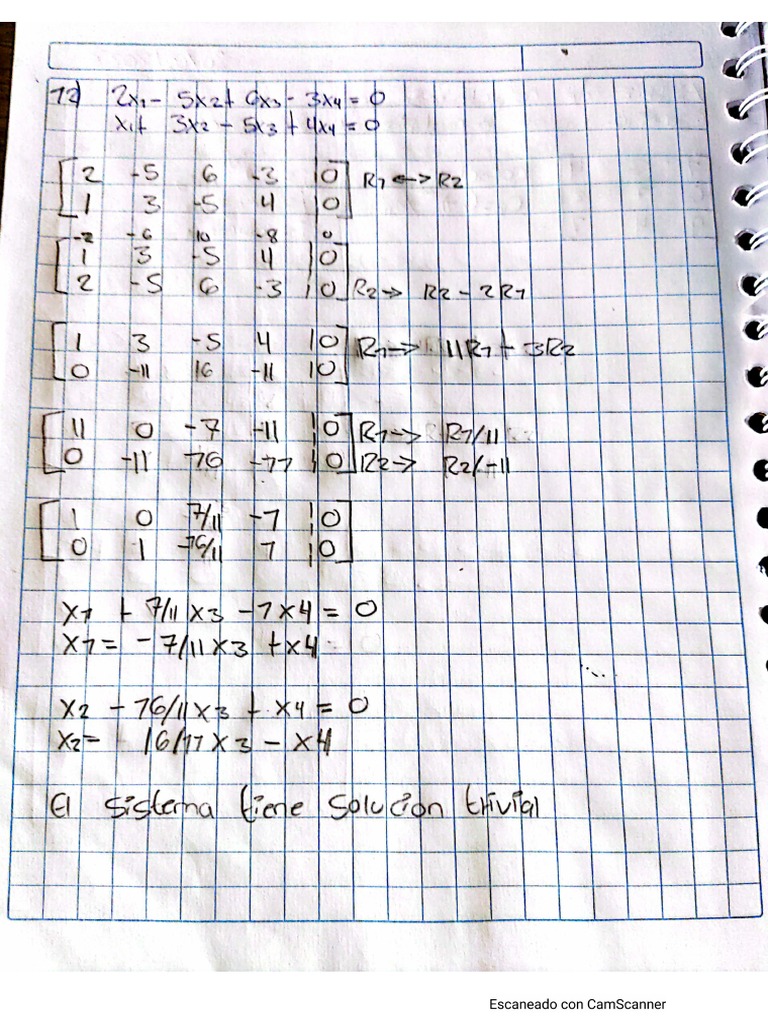 12) 2x1 - 5x2 + 6x3 - 3x4 = 0
x1 + 3x2 - 5x3 + 4x4 = 0
[2 -5 6 -3 | 0] R1 <-> R2
[1 3 -5 4 | 0]
-2 -6 10 -8 0
[1 3 -5 4 | 0]
[2 -5 6 -3 | 0] R2 -> R2 - 2R1
[1 3 -5 4 | 0] R1 -> 11R1 + 3R2
[0 -11 16 -11 | 0]
[11 0 -7 -11 | 0] R1 -> R1/11
[0 -11 16 -11 | 0] R2 -> R2/-11
[1 0 7/11 -1 | 0]
[0 1 -16/11 1 | 0]
x1 + 7/11 x3 - 1x4 = 0
x1 = - 7/11 x3 + x4
x2 - 16/11 x3 + x4 = 0
x2 = 16/11 x3 - x4
El sistema tiene solucion trivial
Escaneado con CamScanner